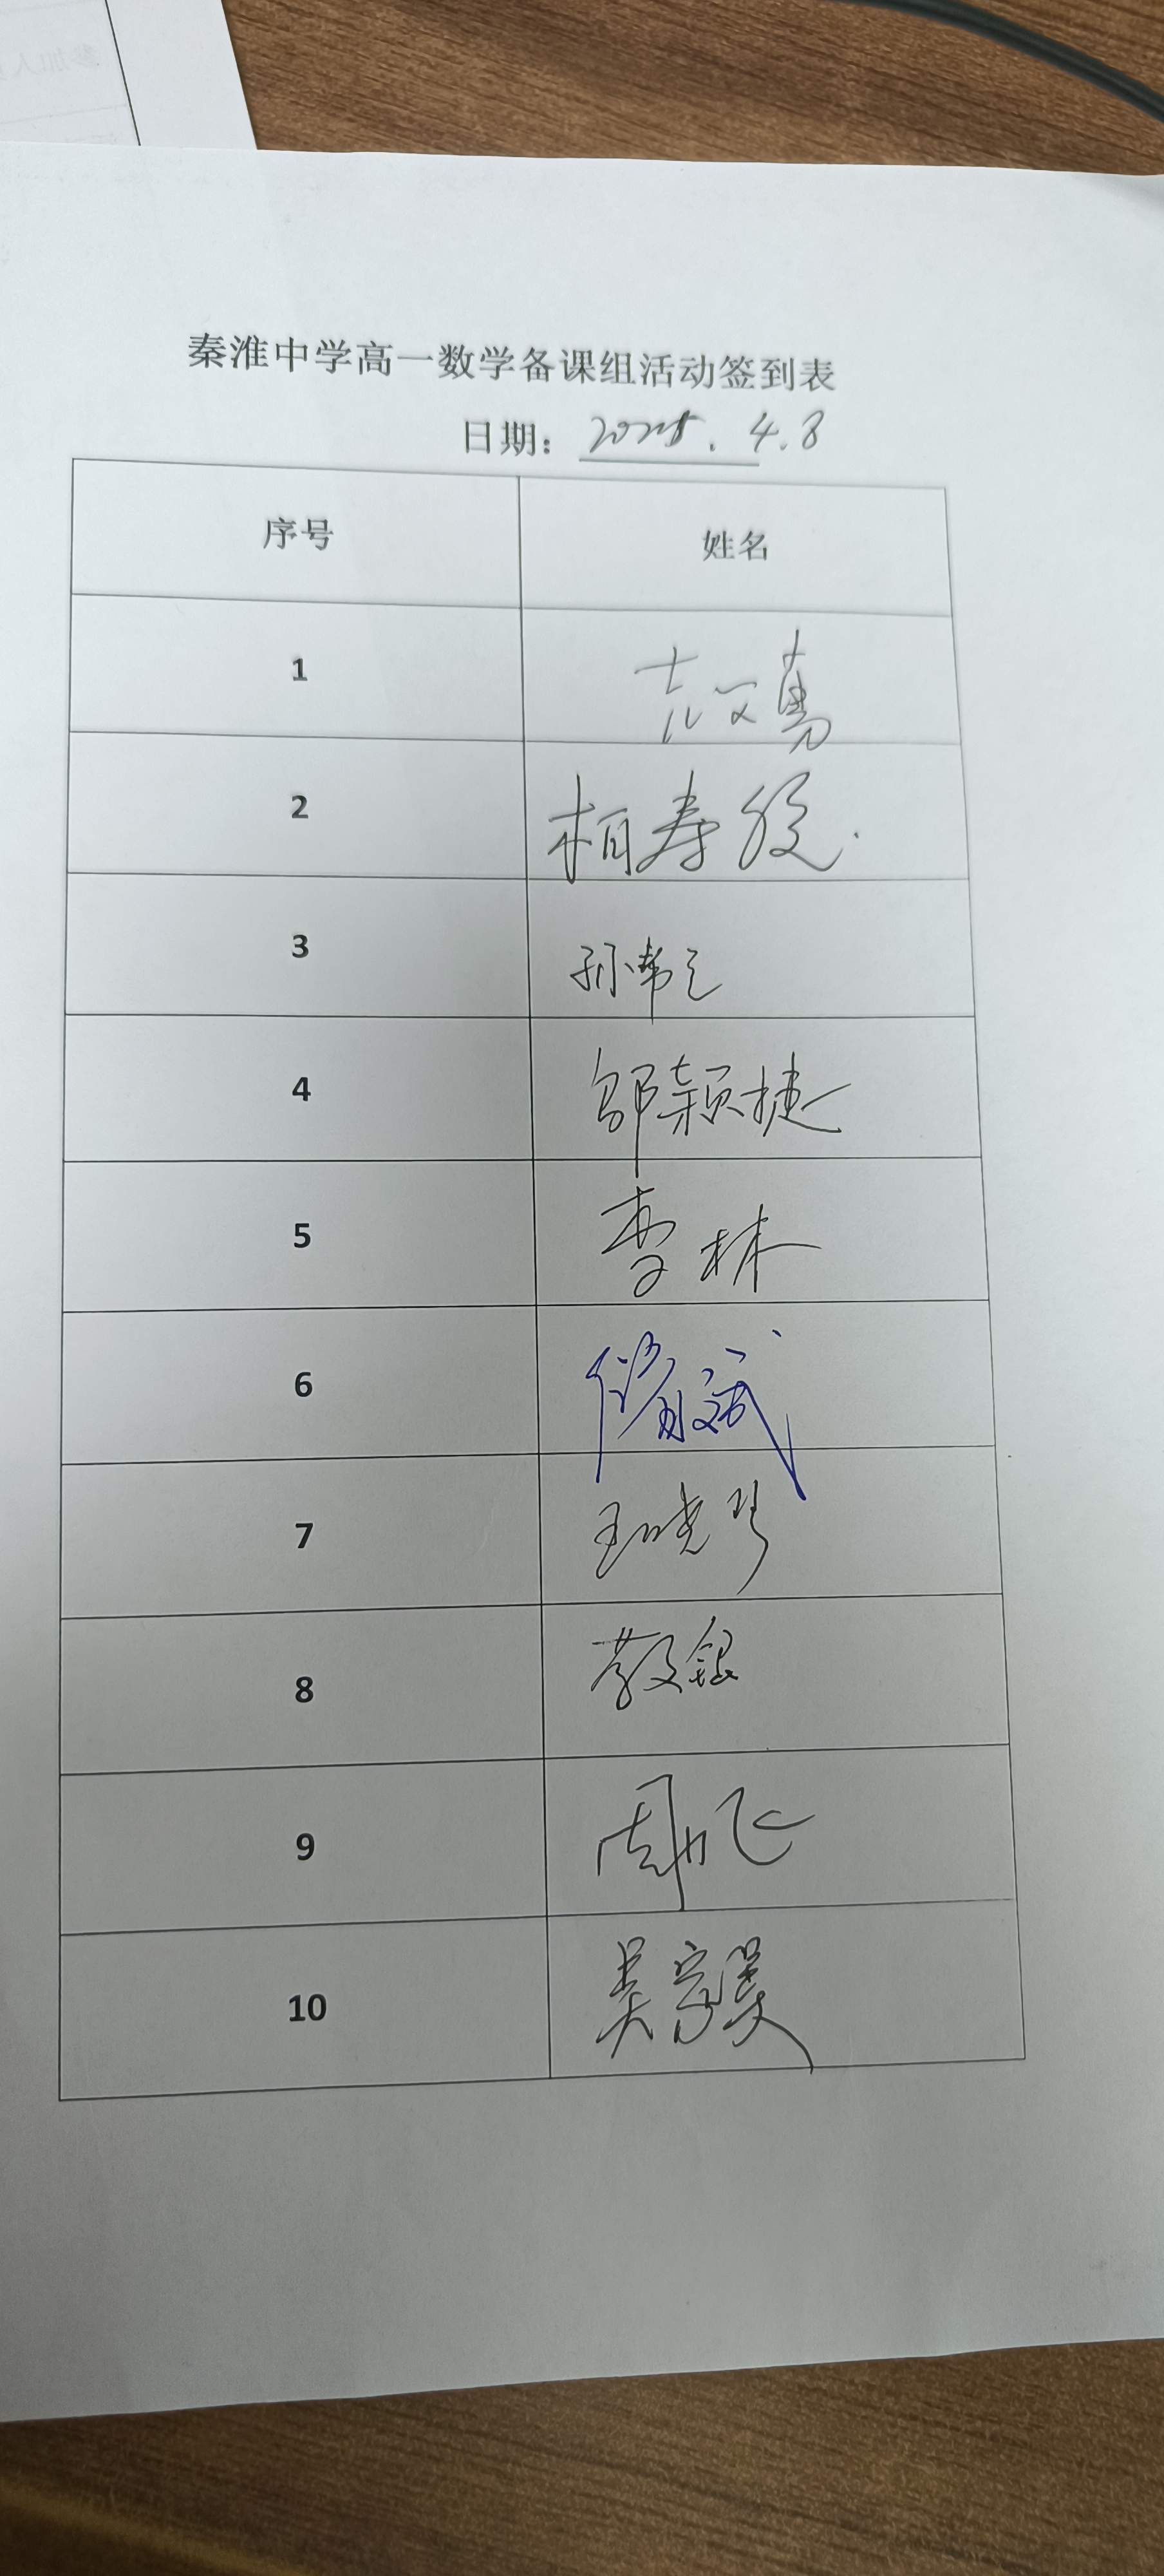 参加人
秦淮中学高一数学备课组活动签到表
日期: 2025.4.8
序号 姓名
1
2 柏寿
3 孙
4 邹颖捷
5 李林
6 文斌
7 王晓琴
8 银
9 周飞
10 吴家昊